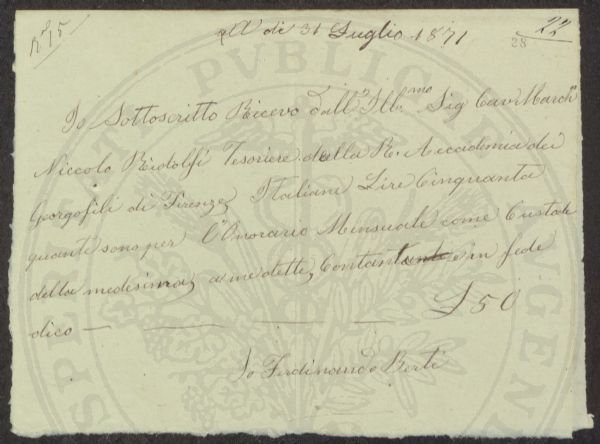 N° 15
A dì 31 Luglio 1871
22
28
Io Sottoscritto Ricevo dall'Ill.mo Sig Cav March
Niccolo Ridolfi Tesoriere della R. Accademia dei
Georgofili di Firenze, Italiane Lire Cinquanta
quante sono per l'Onorario Mensuale come Custode
della medesima, a me dette, Contanti e in fede
dico
£ 50
Io Ferdinando Berti
PVBLICAE